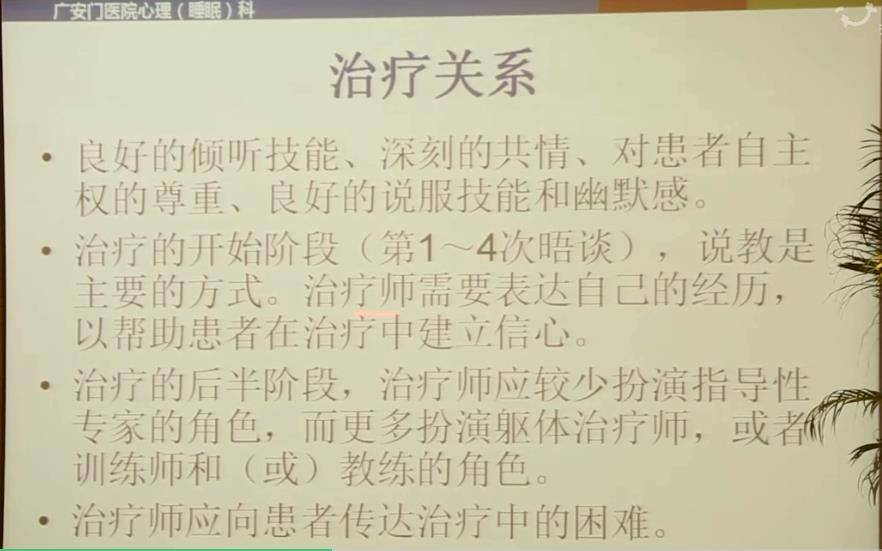 广安门医院心理（睡眠）科
治疗关系
• 良好的倾听技能、深刻的共情、对患者自主
权的尊重、良好的说服技能和幽默感。
• 治疗的开始阶段（第1～4次晤谈），说教是
主要的方式。治疗师需要表达自己的经历，
以帮助患者在治疗中建立信心。
• 治疗的后半阶段，治疗师应较少扮演指导性
专家的角色，而更多扮演躯体治疗师，或者
训练师和（或）教练的角色。
• 治疗师应向患者传达治疗中的困难。